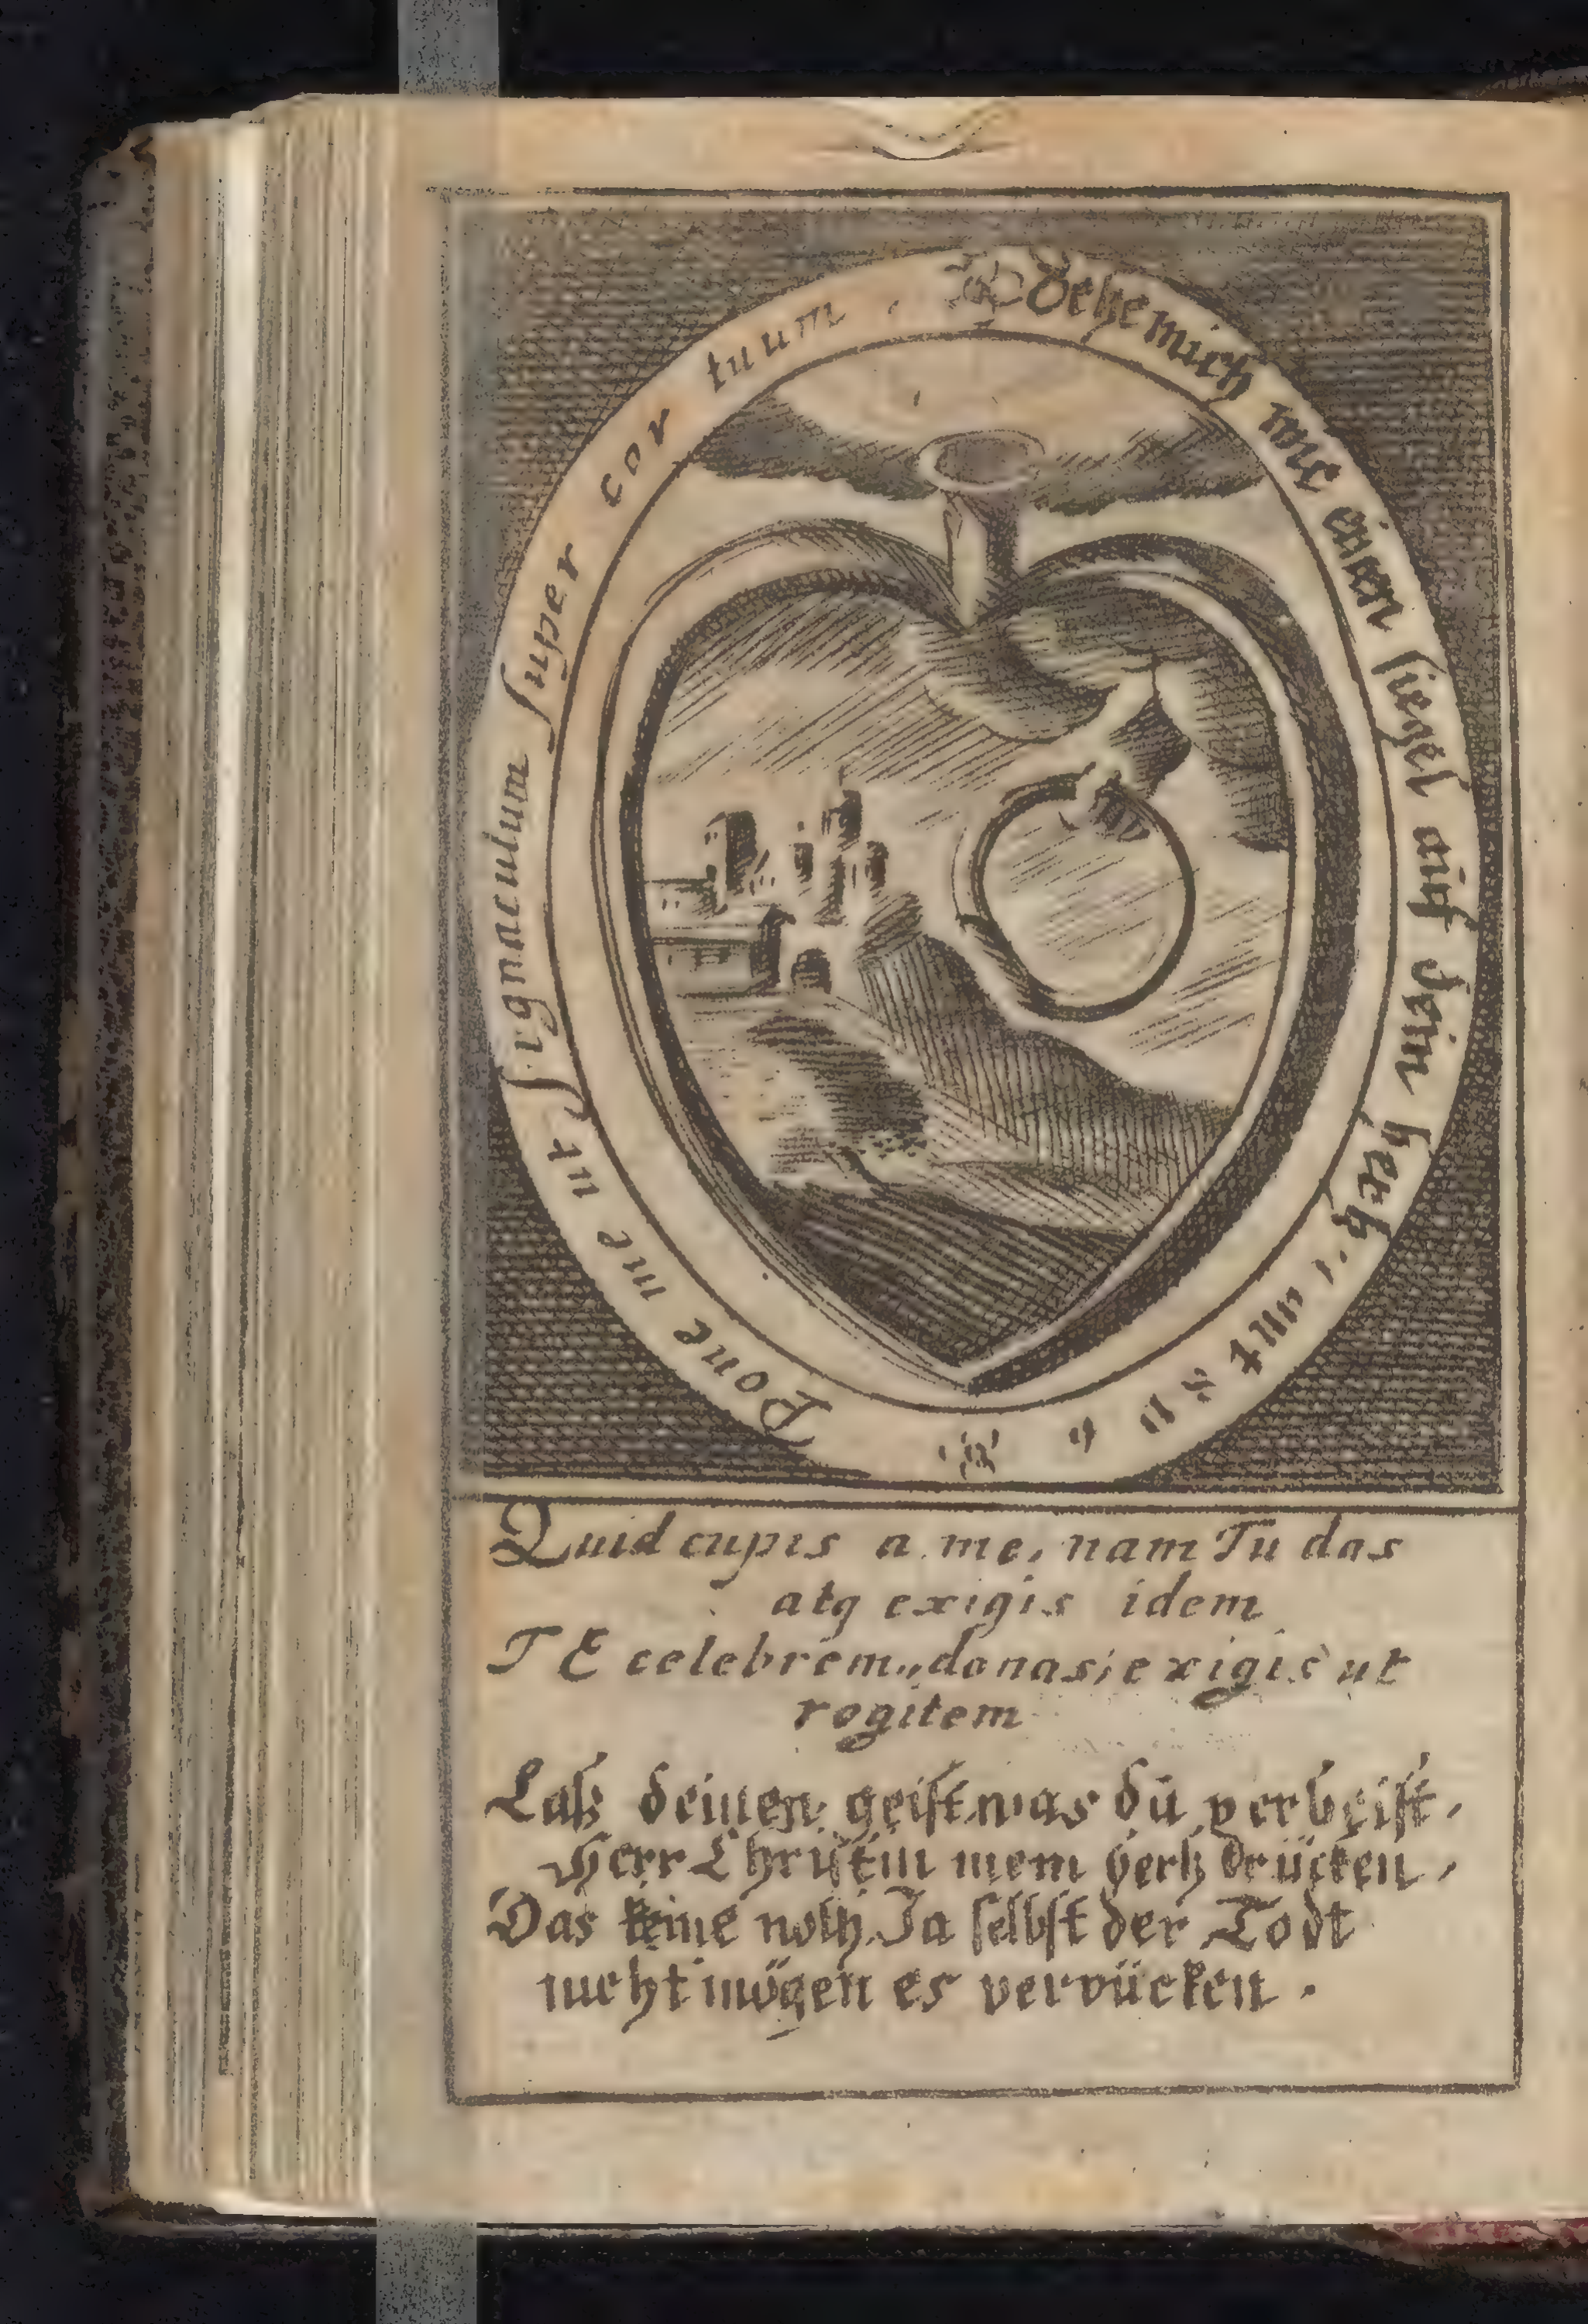 Pone me ut Signaculum super cor tuum.
mich wie einen siegel auf dein hertz
Quid cupis a me, nam Tu das
atq exigis idem
TE celebrem, donas; exigis ut
rogitem
Laß deinen geist was du verheist,
Herr Christ in mein hertz drücken,
Das keine noth Ja selbst der Todt
nicht mögen es verrücken.